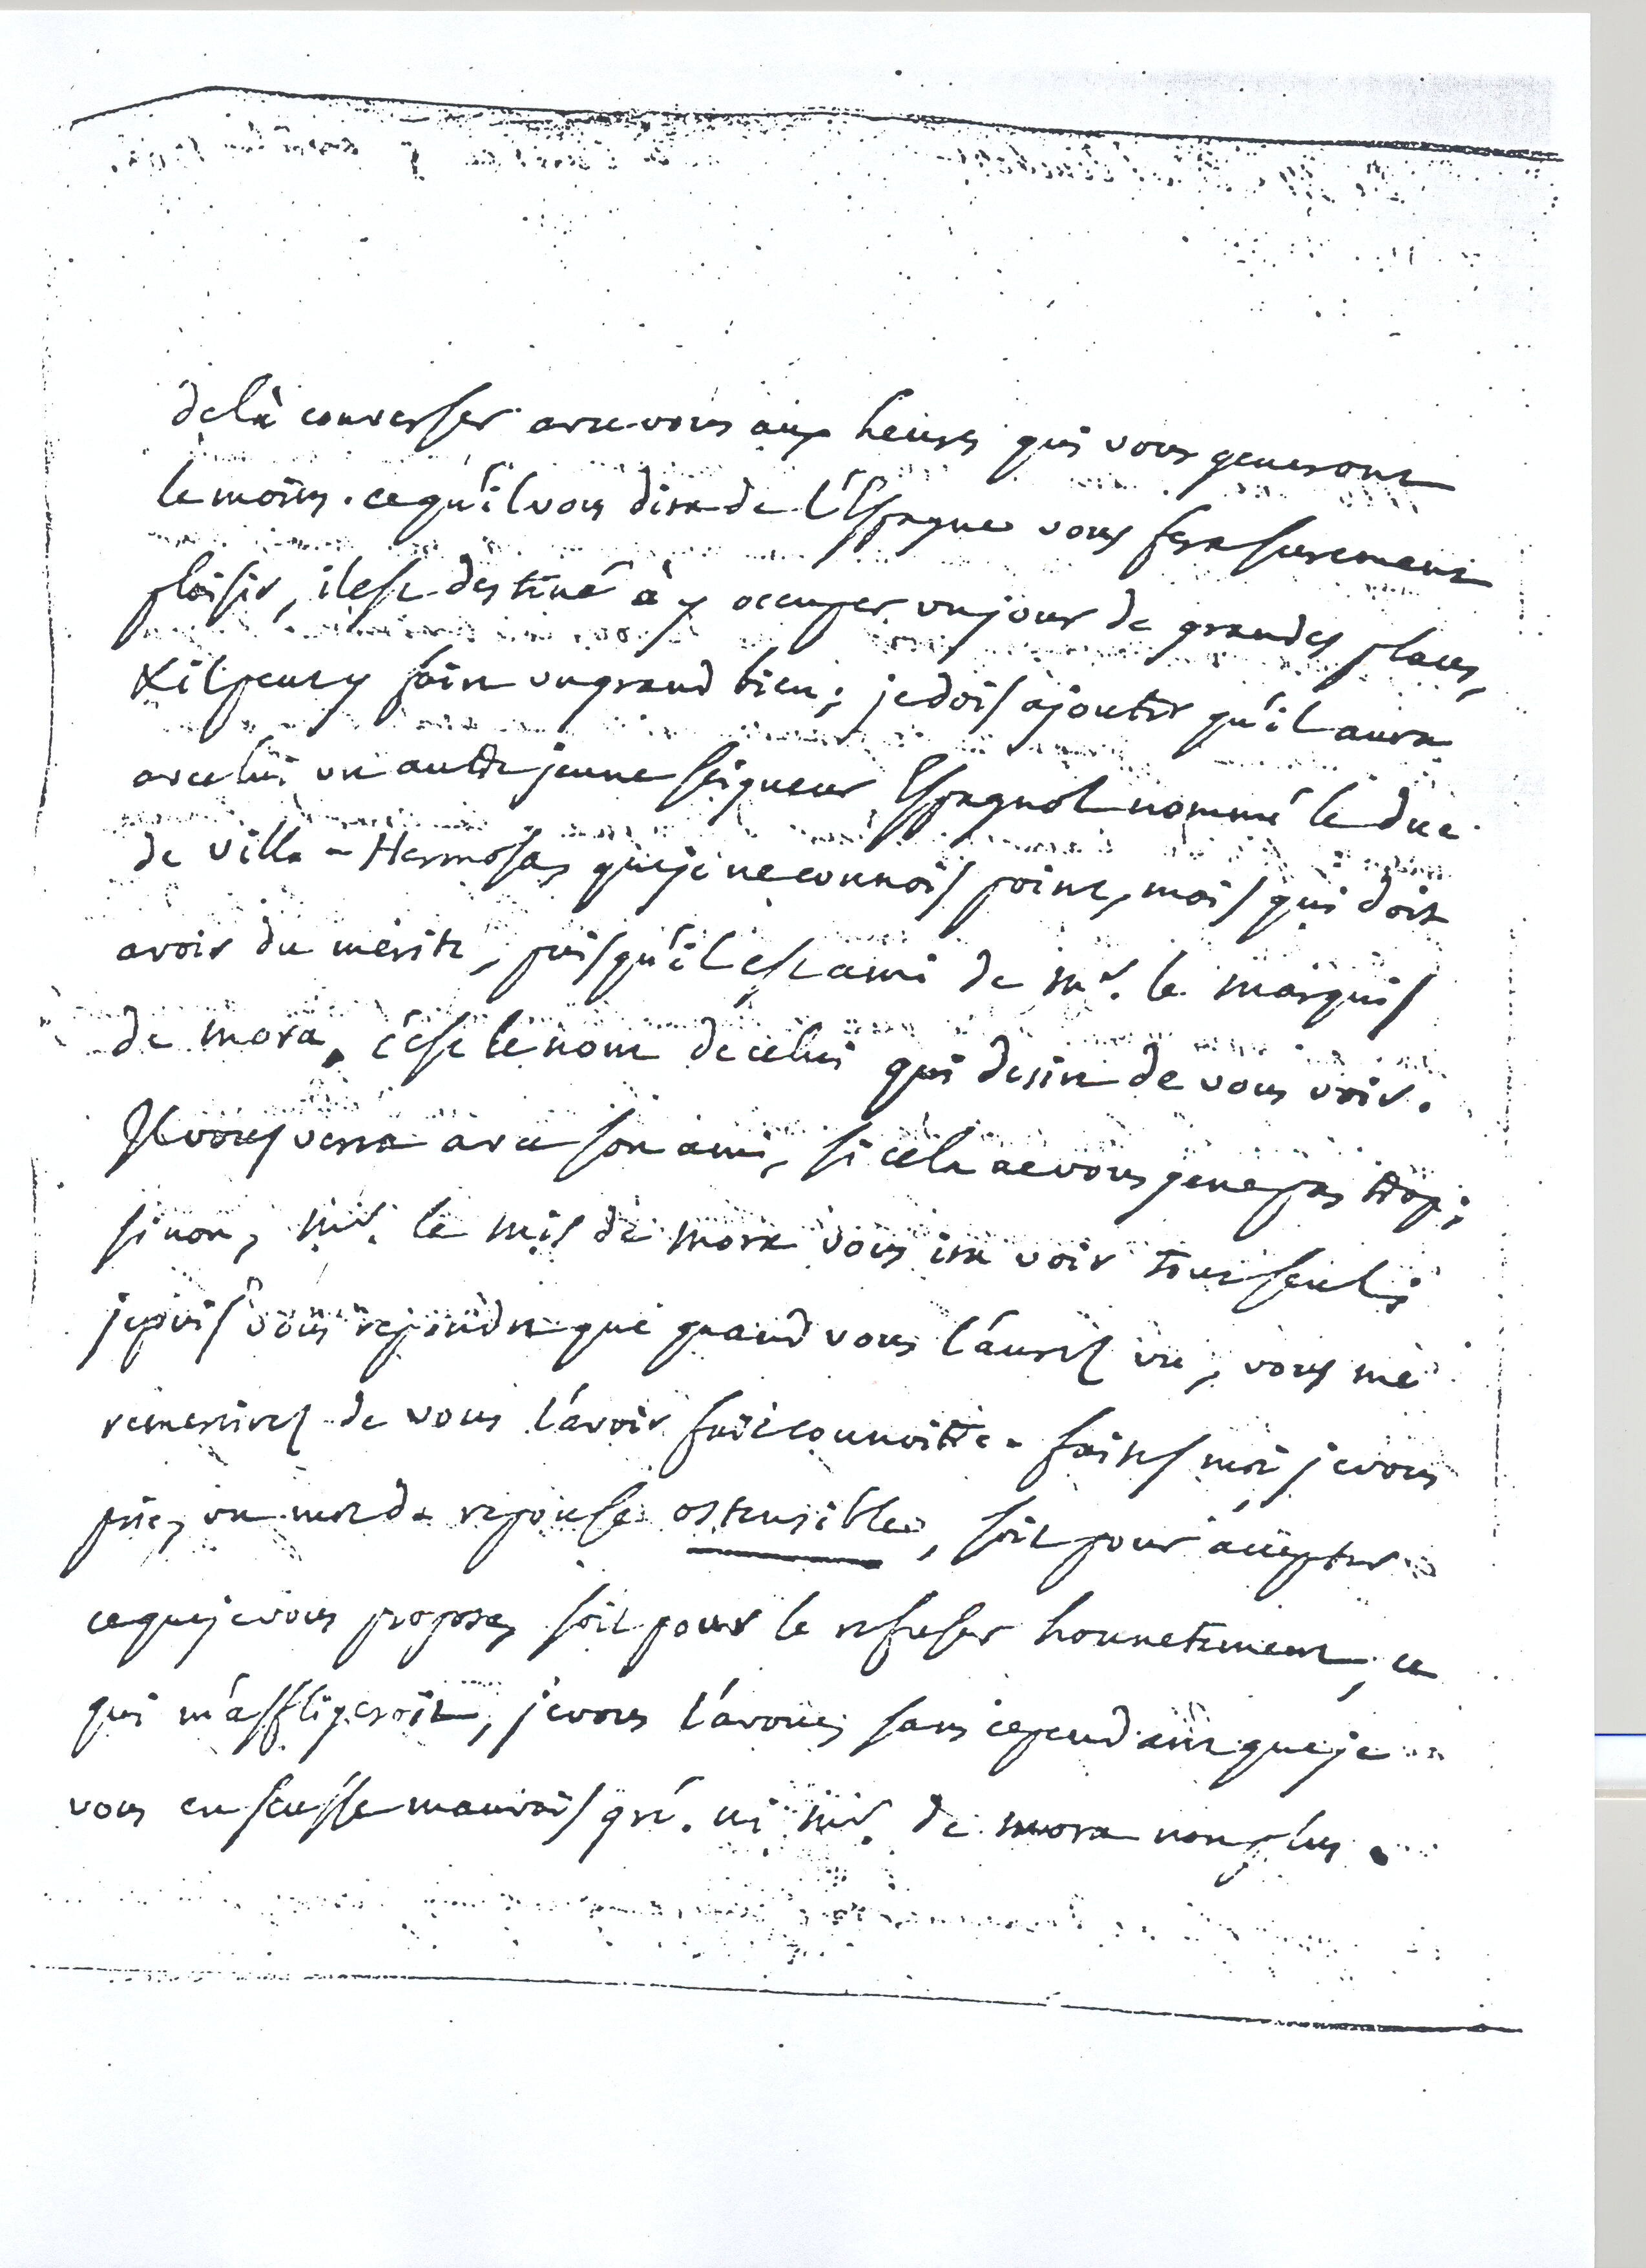 de là converser avec vous aux heures qui vous generont
le moins. ce qu'il vous dira de l'Espagne vous fera surement
plaisir, il est destiné à y occuper un jour de grandes places,
& il peut y faire un grand bien; je dois ajouter qu'il aura
avec lui un autre jeune seigneur Espagnol nommé le duc
de Villa-Hermosa, que je ne connois point, mais qui doit
avoir du mérite, puisqu'il est ami de mr. le marquis
de mora, c'est le nom de celui qui desire de vous voir.
Il vous verra avec son ami, si cela ne vous gene pas trop;
sinon, mr. le mis de mora vous ira voir tout seul;
je puis vous repondre que quand vous l'aurez vu, vous me
remercirez de vous l'avoir fait connoitre. faites moi je vous
prie, un mot de reponse ostensible, soit pour accepter
ce que je vous propose, soit pour le refuser honnetement, ce
qui m'affligeroit, je vous l'avoue, sans cependant que je
vous en sceusse mauvais gré. ni mr. de mora non plus.